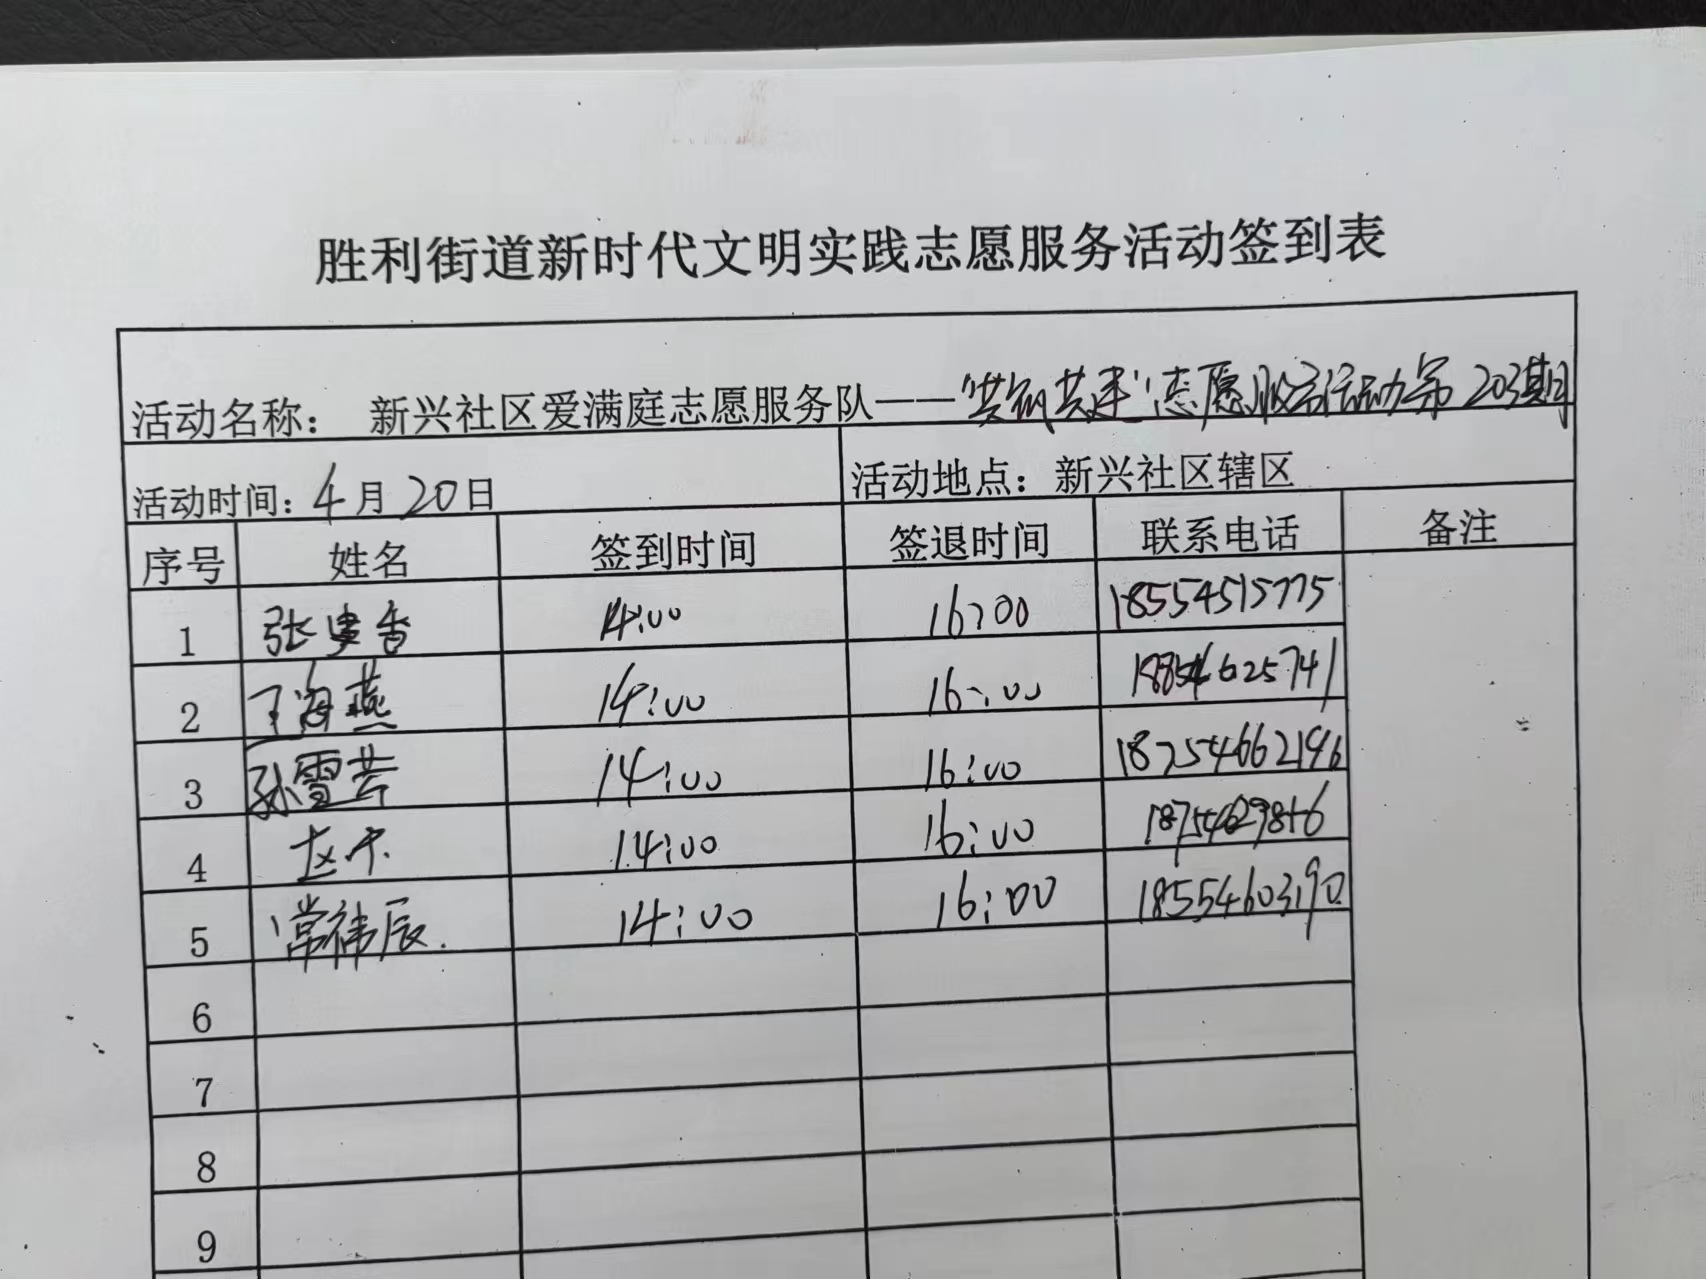 胜利街道新时代文明实践志愿服务活动签到表
活动名称： 新兴社区爱满庭志愿服务队——"共筑共建"志愿服务活动第203期
活动时间：4月20日 活动地点：新兴社区辖区
序号 姓名 签到时间 签退时间 联系电话 备注
1 张建香 14:00 16:00 18554515775
2 丁海燕 14:00 16:00 18854625741
3 孙雪芳 14:00 16:00
4 14:00 16:00
5 常祎辰. 14:00 16:00 18554603190
6
7
8
9